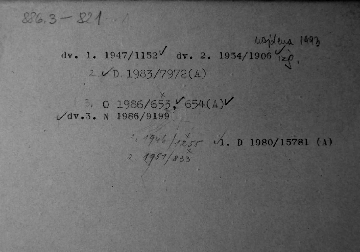 886.3-821
dv. 1. 1947/1152✓ dv. 2. 1954/1906✓
2. ✓D 1983/7972(A)
3. O 1986/653,✓654(A)✓
✓dv.3. N 1986/9199
1. 1946/1255 ✓1. D 1980/15781 (A)
2. 1951/833